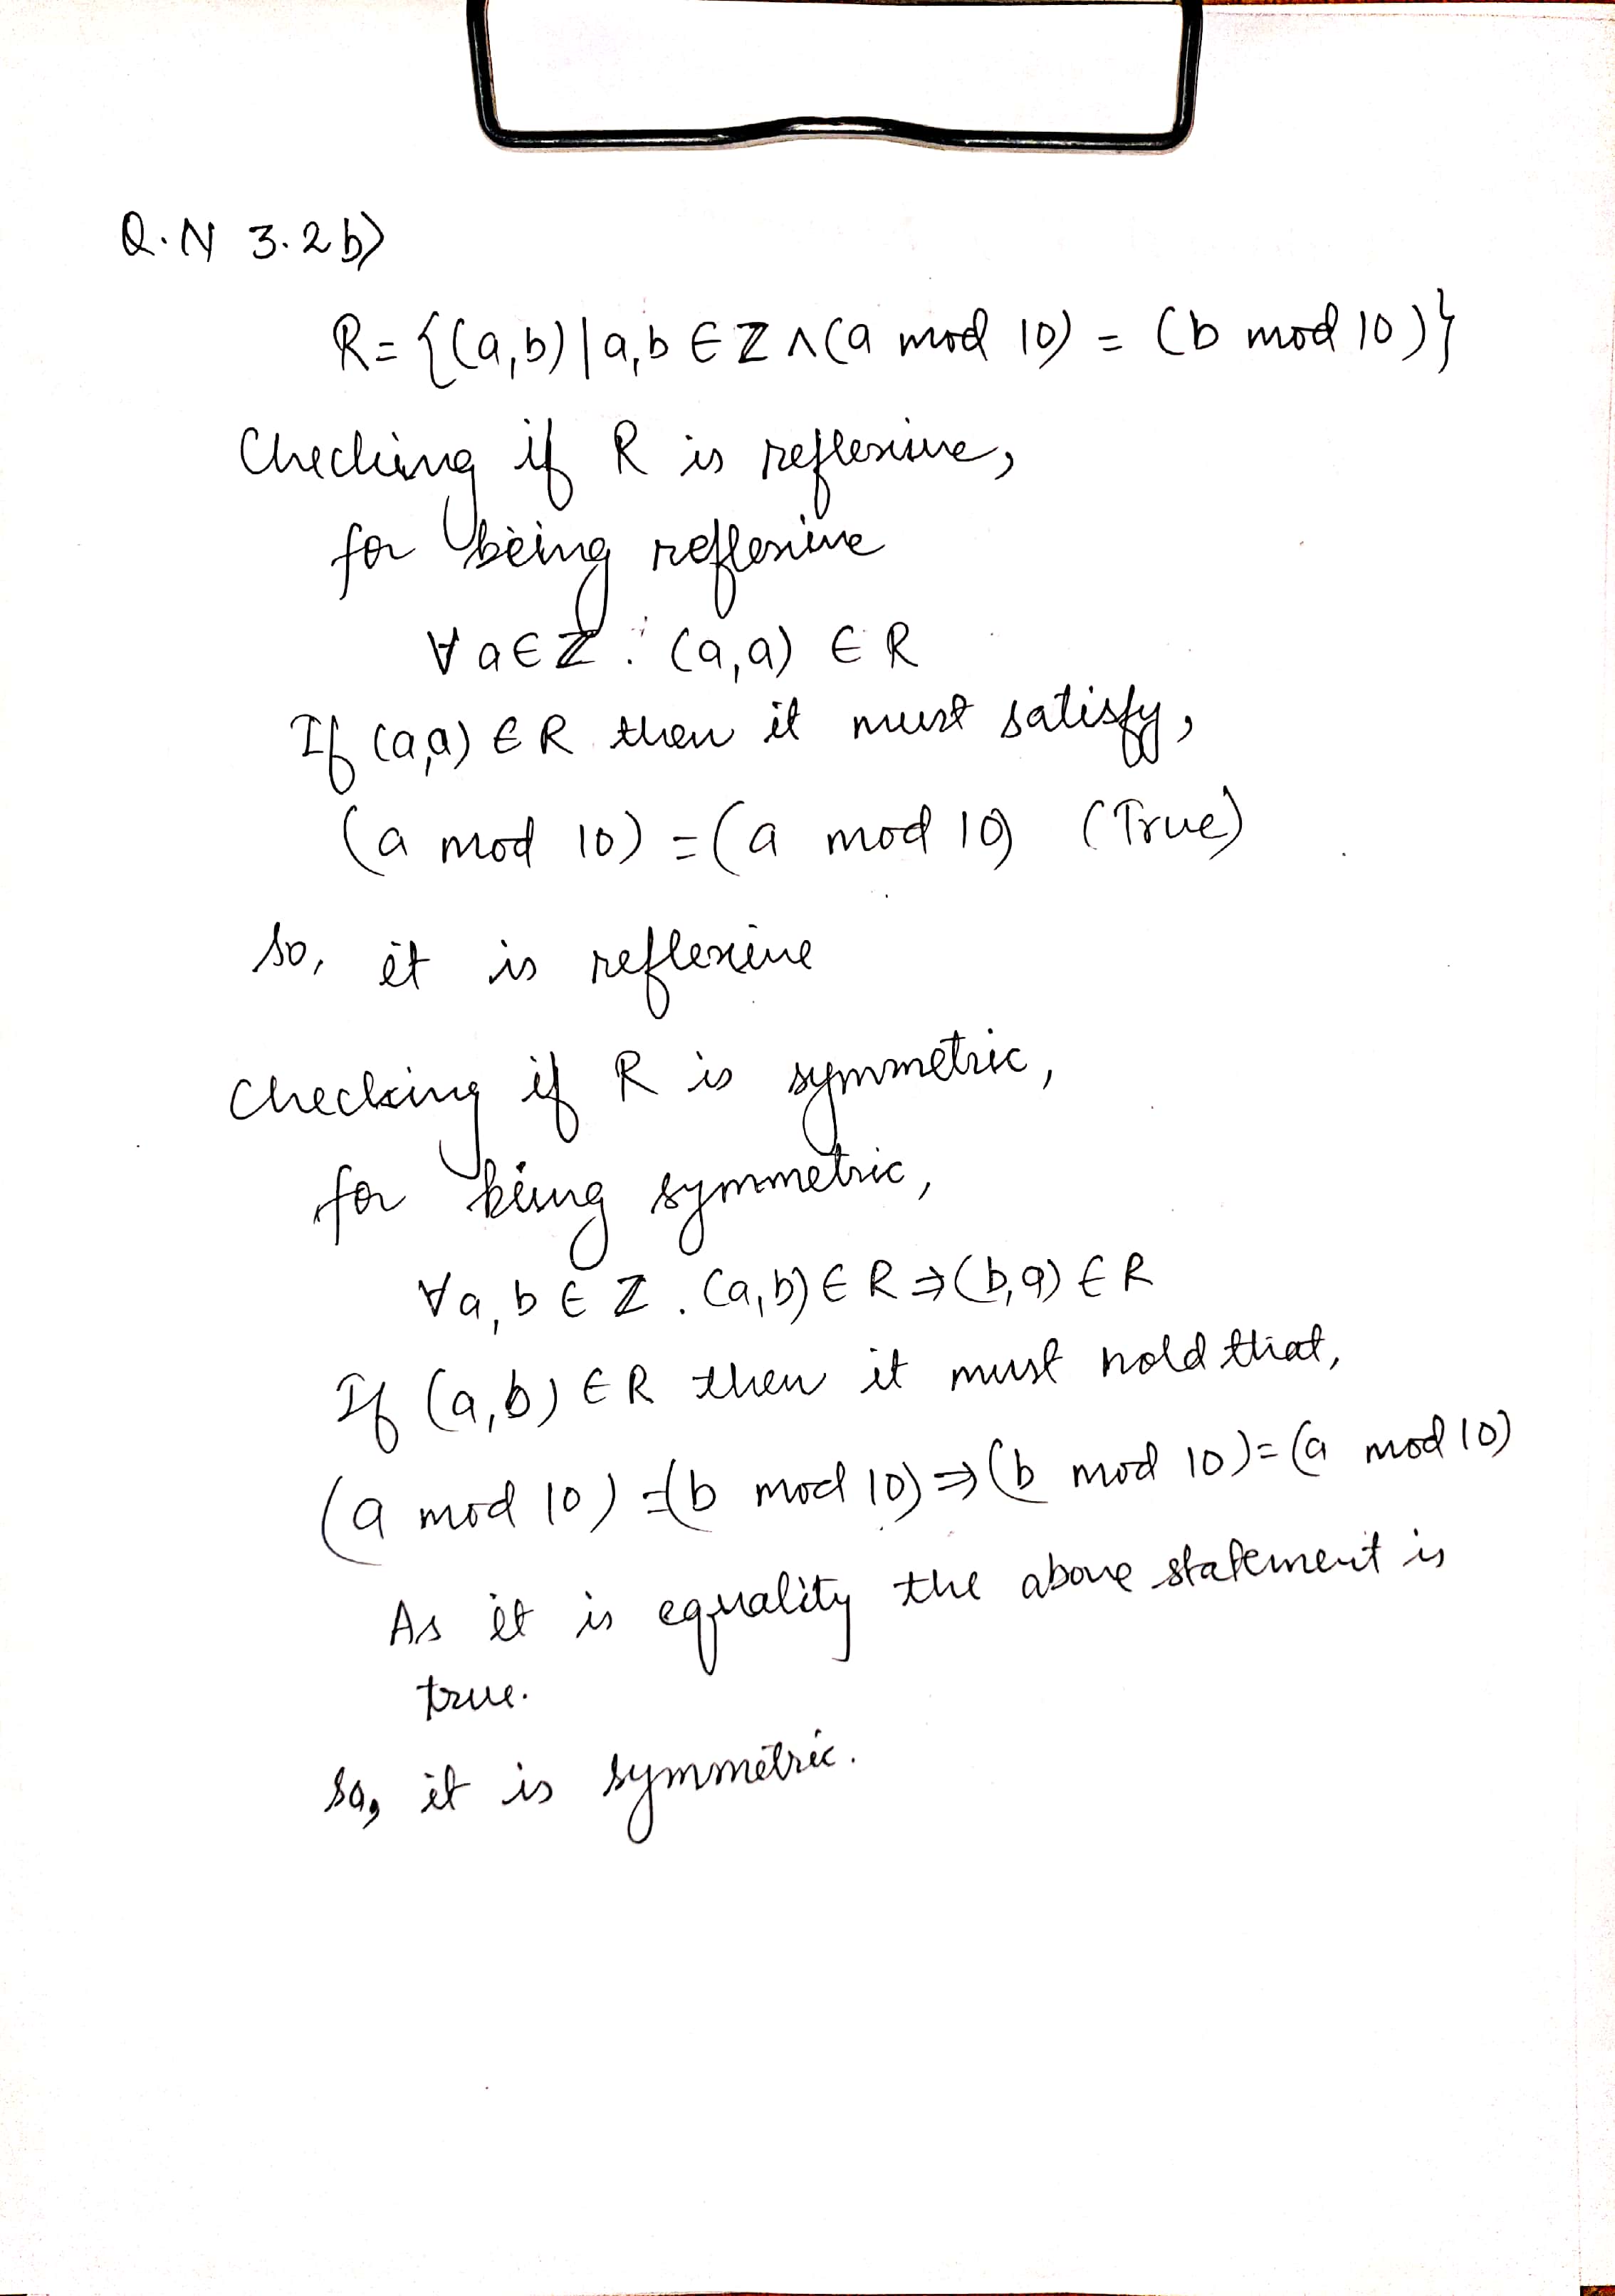 Q.N 3.2b)
R={(a,b)|a,b ∈ Z ∧ (a mod 10) = (b mod 10)}
Checking if R is reflexive,
for being reflexive
∀ a ∈ Z : (a,a) ∈ R
If (a,a) ∈ R then it must satisfy,
(a mod 10) = (a mod 10) (True)
so, it is reflexive
Checking if R is symmetric,
for being symmetric,
∀a,b ∈ Z . (a,b) ∈ R ⇒ (b,a) ∈ R
If (a,b) ∈ R then it must hold that,
(a mod 10) = (b mod 10) ⇒ (b mod 10) = (a mod 10)
As it is equality the above statement is
true.
so, it is symmetric.